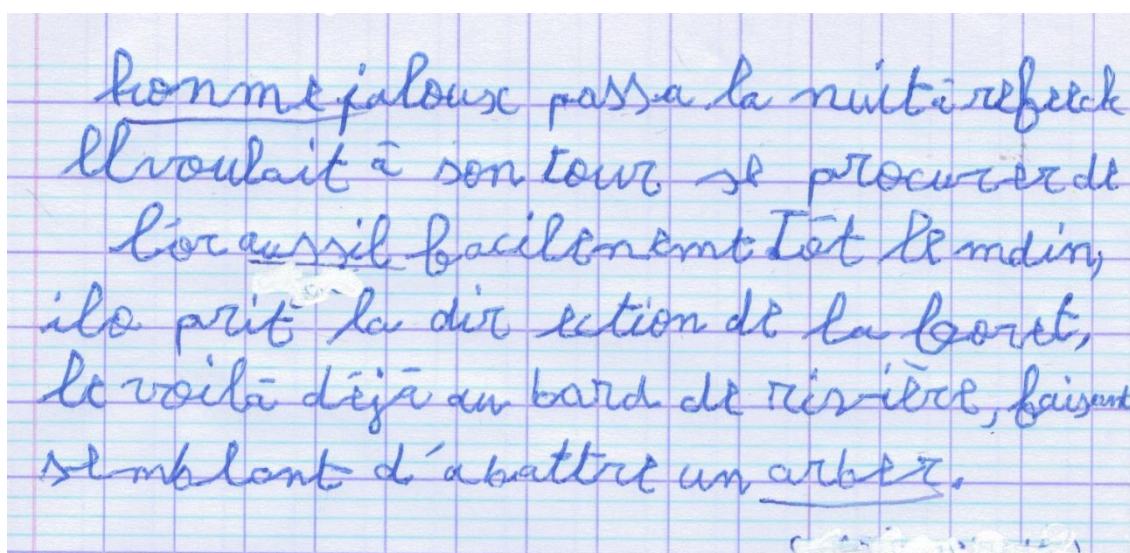 homme jaloux passa la nuit à refleck
Il voulait à son tour se procurer de
l'or aussil facilenemt Tôt le mdin,
ilo prit la dir ection de la foret,
le voilà déjà au bord de risvière, faisant
semblant d'abattre un arber.